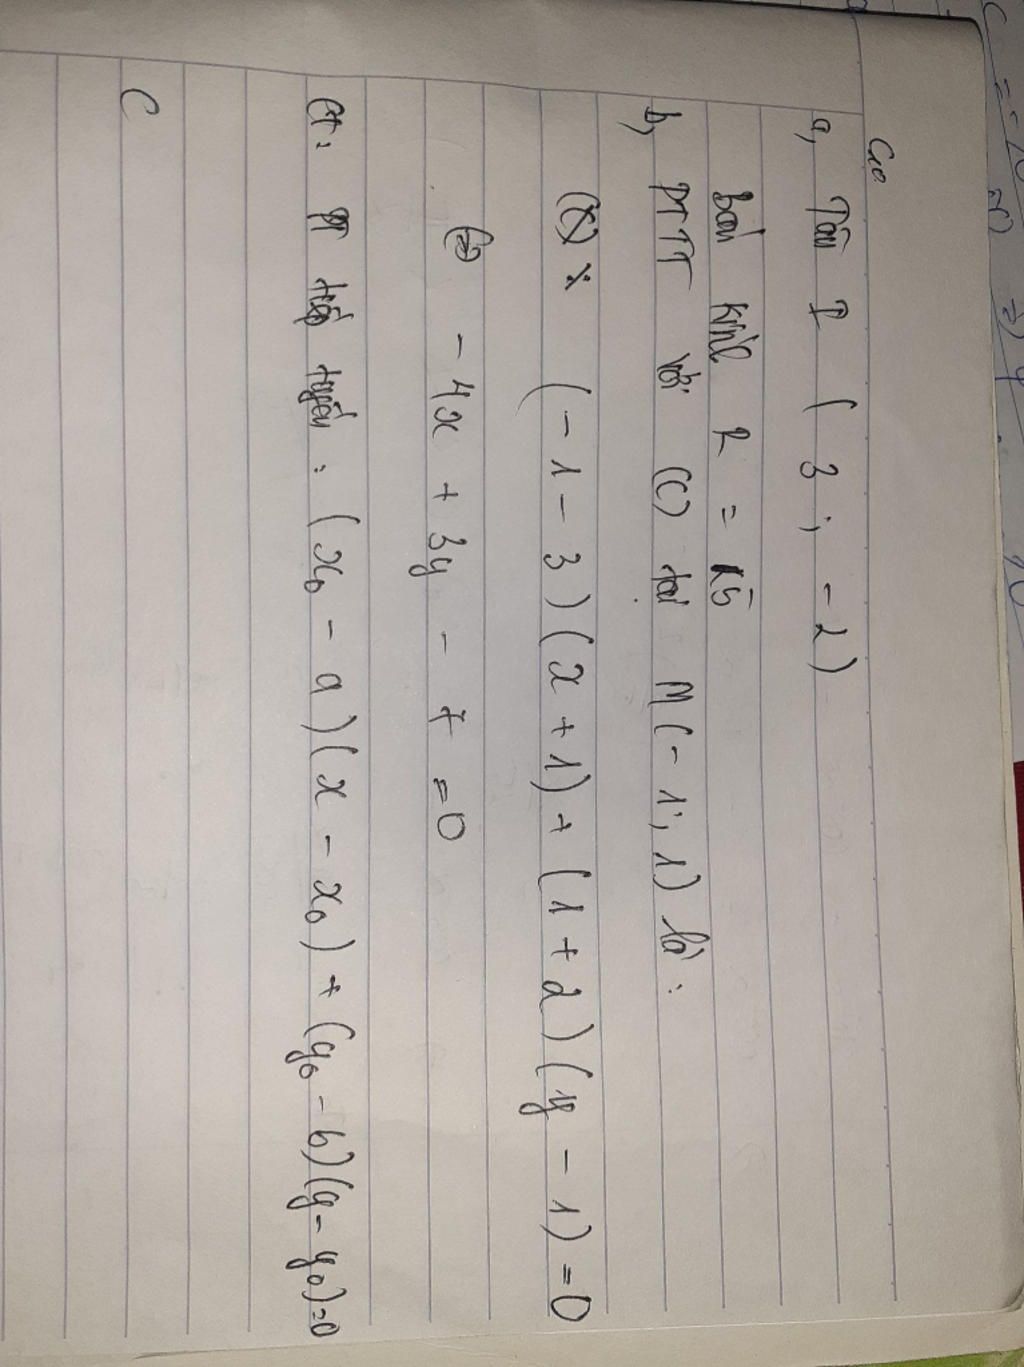 a, Tâm I ( 3 ; - 2 )
bán kính R =
b, PTTT với (C) tại M ( - 1 ; 1 ) là :
( - 1 - 3 ) ( x + 1 ) + ( 1 + 2 ) ( y - 1 ) = 0
- 4x + 3y - 7 = 0
CT : PT tiếp tuyến : ( x₀ - a ) ( x - x₀ ) + ( y₀ - b ) ( y - y₀ ) = 0
C